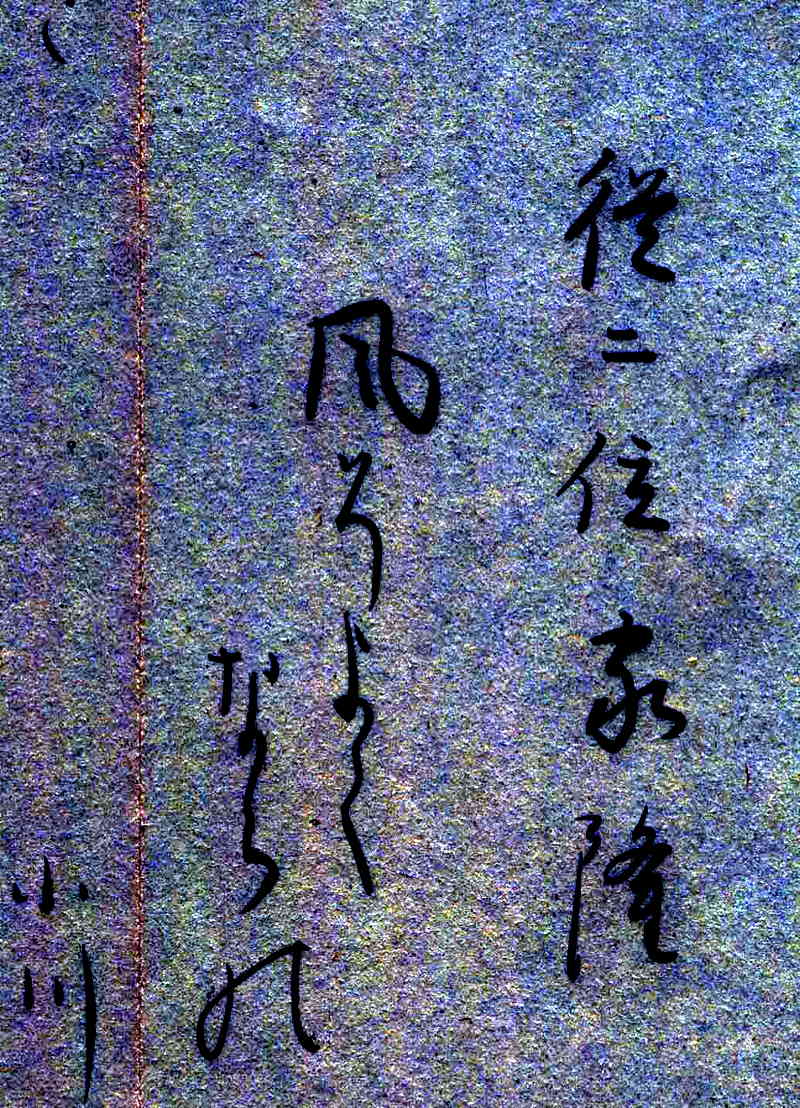 従二位家隆
風そよく
ならの
小川